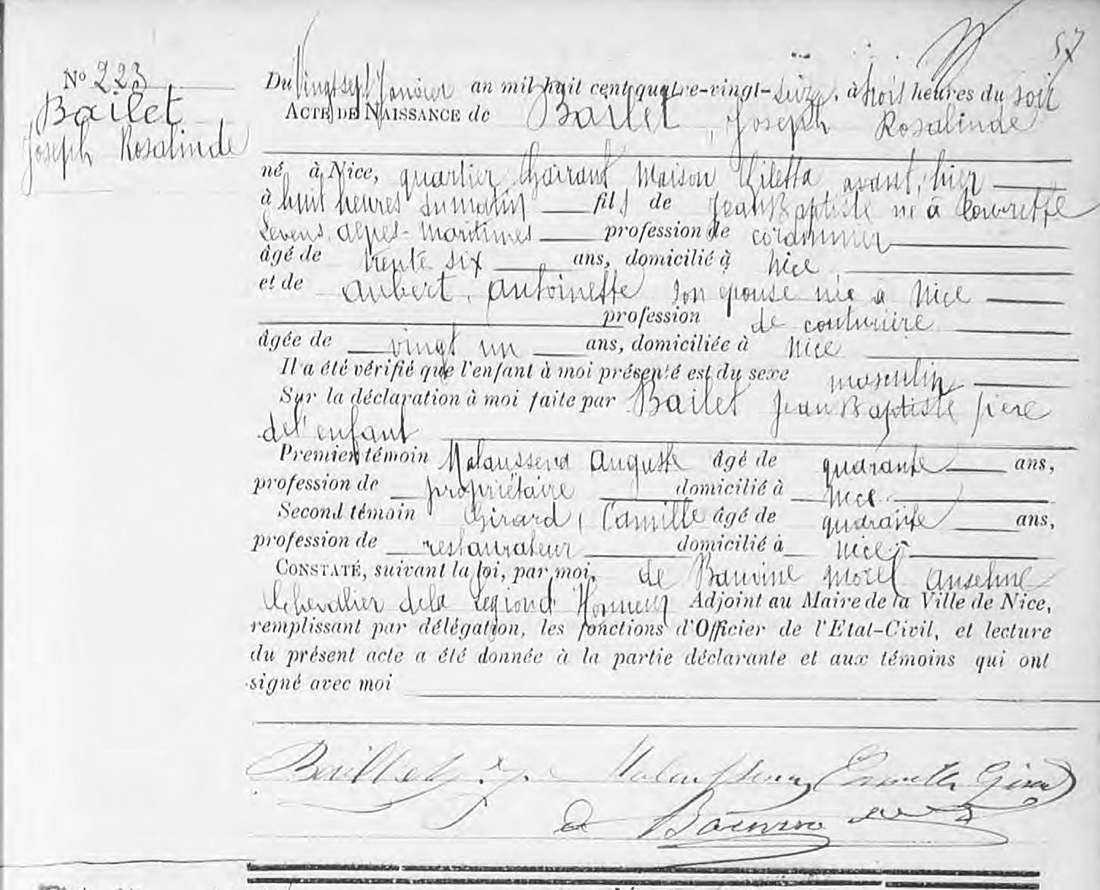 57
No 223
Bailet
Joseph Rosalinde
Du vingt sept Janvier an mil huit cent quatre-vingt-seize, à trois heures du soir
ACTE DE NAISSANCE de Bailet, Joseph Rosalinde
né à Nice, quartier Gairaut maison Giletta avant hier
à huit heures du matin fils de Jean Baptiste né à Tourrette
Levens, alpes-maritimes profession de cordonnier
âgé de trente six ans, domicilié à Nice
et de Aubert, Antoinette son épouse née à Nice
profession de couturière
âgée de vingt un ans, domiciliée à Nice
Il a été vérifié que l'enfant à moi présenté est du sexe masculin
Sur la déclaration à moi faite par Bailet Jean Baptiste père
de l'enfant
Premier témoin Malaussena Auguste âgé de quarante ans,
profession de propriétaire domicilié à Nice
Second témoin Girard, Camille âgé de quarante ans,
profession de restaurateur domicilié à Nice
CONSTATÉ, suivant la loi, par moi, de Anselme
Chevalier de la Légion d'Honneur Adjoint au Maire de la Ville de Nice,
remplissant par délégation, les fonctions d'Officier de l'Etat-Civil, et lecture
du présent acte a été donnée à la partie déclarante et aux témoins qui ont
signé avec moi